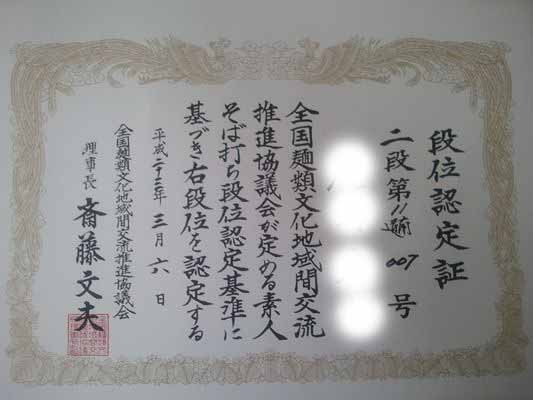 段位認定証
二段第11遍007号
全国麺類文化地域間交流
推進協議会が定める素人
そば打ち段位認定基準に
基づき右段位を認定する
平成二十三年三月六日
全国麺類文化地域間交流推進協議会
理事長 斎藤文夫